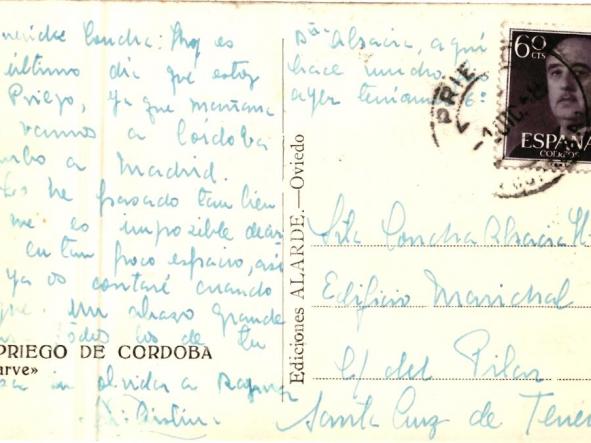 Querida Concha: Hoy es
último día que estoy
Priego, ya que mañana
vamos a Córdoba
rumbo a Madrid.
he pasado tan bien
me es imposible decir
en tan poco espacio, así
ya os contaré cuando
Un abrazo grande
todos los de tu
sin olvidar a
PRIEGO DE CORDOBA
arve»
Ediciones ALARDE.—Oviedo
Alsacia, aquí
hace mucho
ayer teníamos 6:
60
CTS
ESPAÑA
CORREOS
PRIE
Srta Concha Alsacia
Edificio Marichal
C/ del Pilar
Santa Cruz de Tene